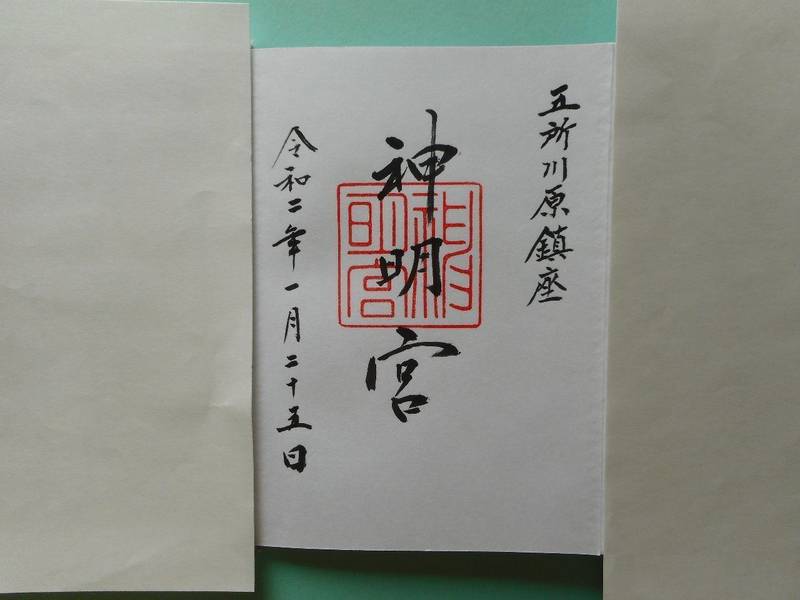 五所川原鎮座
神明宮
令和二年一月二十五日